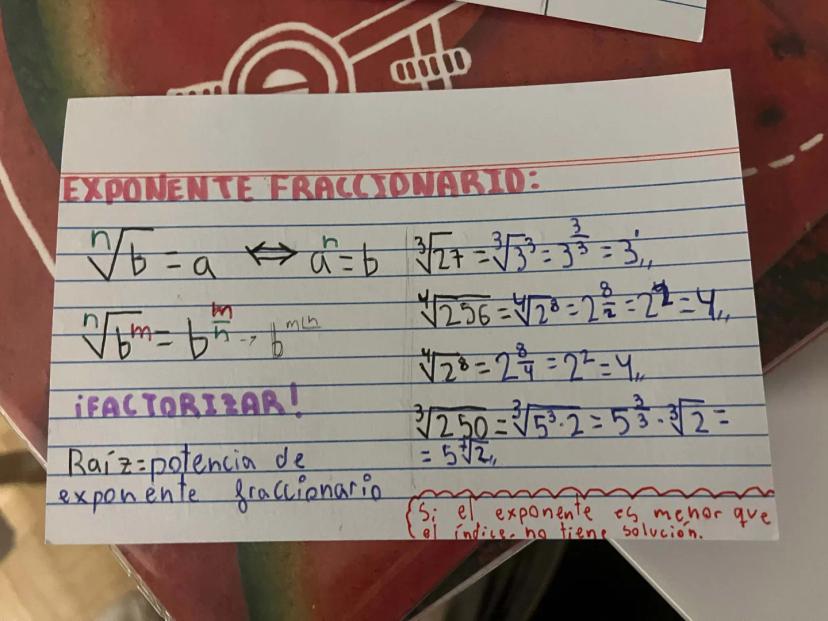 EXPONENTE FRACCIONARIO:
ⁿ√b = a ⟺ aⁿ = b
ⁿ√bᵐ = b^(m/n) → b^(m/n)
¡FACTORIZAR!
Raíz=potencia de
exponente fraccionario
³√27 = ³√3³ = 3^(3/3) = 3¹,,
⁴√256 = ⁴√2⁸ = 2^(8/2) = 2² = 4,,
⁴√2⁸ = 2^(8/4) = 2² = 4,,
³√250 = ³√5³·2 = 5^(3/3) · ³√2 =
= 5 ³√2,,
Si el exponente es menor que
el índice, no tiene solución.